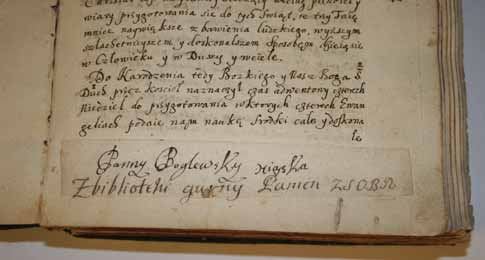 wiary przygotowania się do tych Świąt, te try Taię
mnice naywiększe zbawienia ludzkiego, wyższym
szlachetnieyszem, y doskonalszem sposobem, święcić
w Człowieku y w Duszy y w ciele.
Do Narodzenia tedy Bozkiego y Nasz Boga S
Duch przez Kościoł naznaczył czas adwentowy czterech
Niedziel do przygotowania w ktorych czterech Ewan
geliach podaie nam naukę środki cało y doskona
le
Panny Boglewsky Xięska
Zbiblioteki gurny Panien ZSOBN